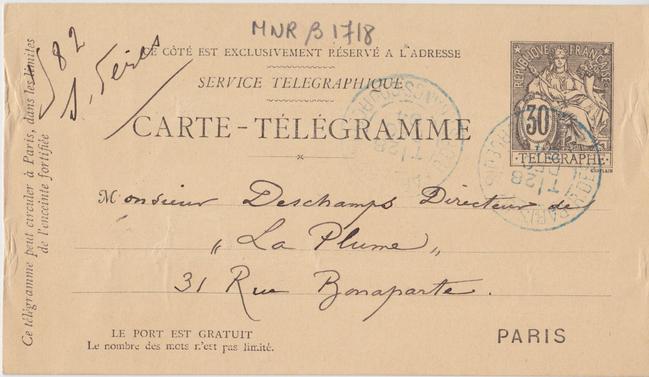 MNR β 1718
CE CÔTÉ EST EXCLUSIVEMENT RÉSERVÉ À L'ADRESSE
SERVICE TÉLÉGRAPHIQUE
CARTE-TÉLÉGRAMME
RÉPUBLIQUE FRANÇAISE
30
TÉLÉGRAPHE
Monsieur Deschamps Directeur de
"La Plume"
31 Rue Bonaparte.
LE PORT EST GRATUIT
Le nombre des mots n'est pas limité.
PARIS
Ce télégramme peut circuler à Paris, dans les limites
de l'enceinte fortifiée
82